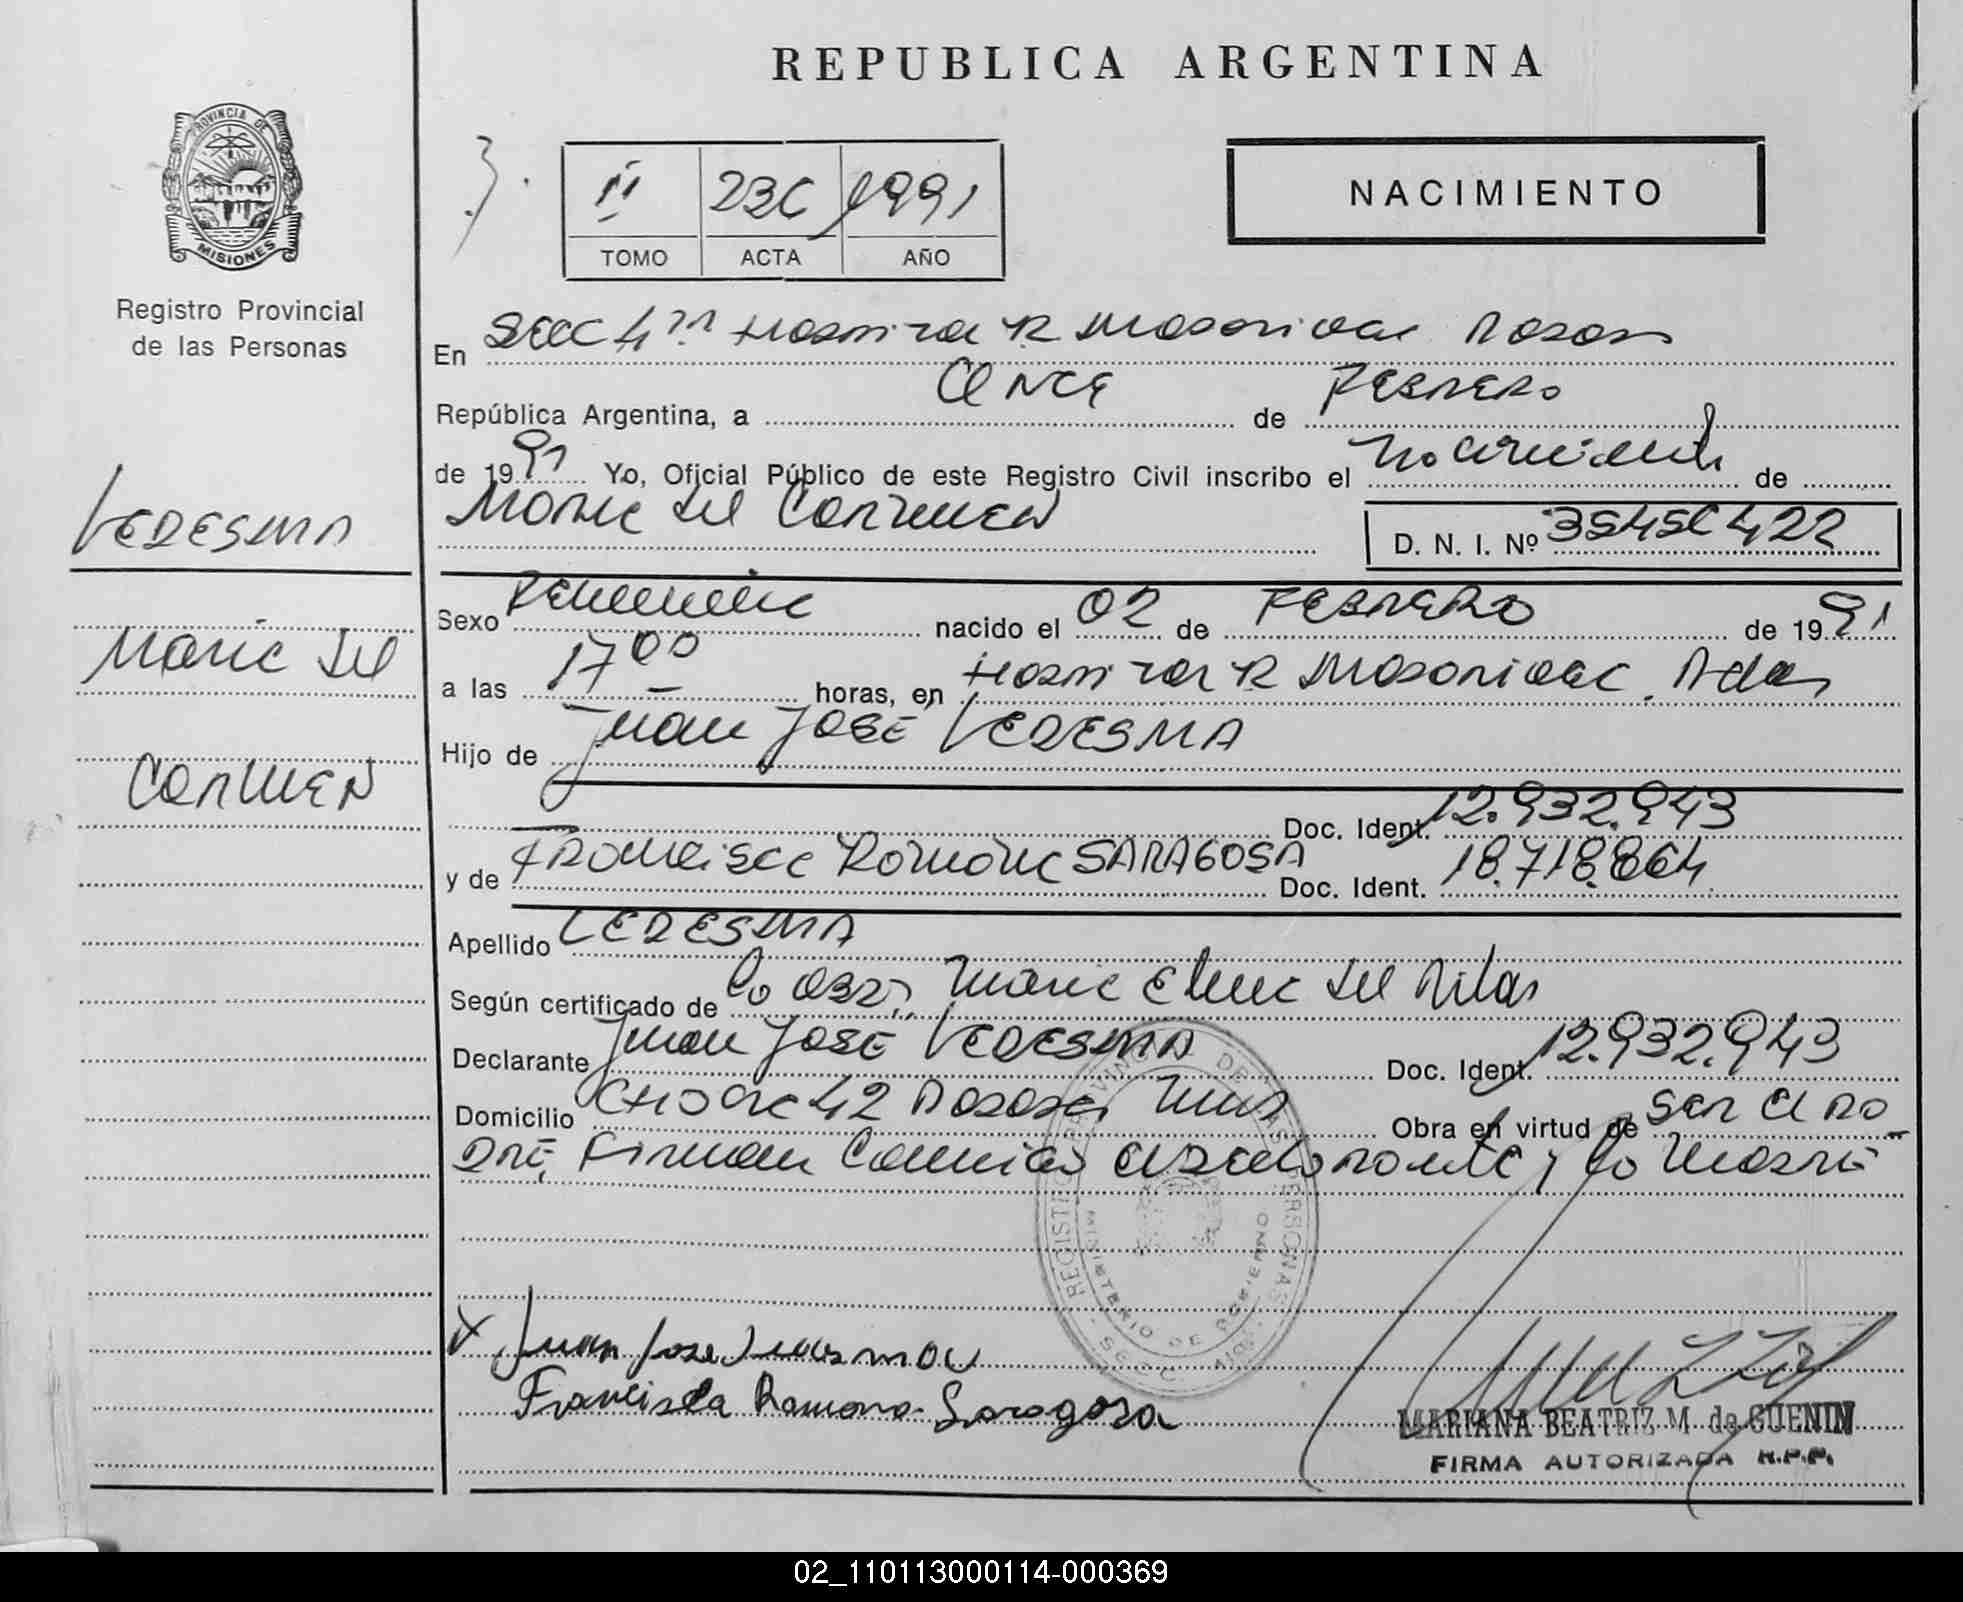 REPUBLICA ARGENTINA
PROVINCIA DE
MISIONES
Registro Provincial
de las Personas
II 236 1991
TOMO ACTA AÑO
NACIMIENTO
En SECC 4ta Hospital R Madariaga Posadas
República Argentina, a ONCE de FEBRERO
de 1991 Yo, Oficial Público de este Registro Civil inscribo el nacimiento de
Maria del CARMEN
D. N. I. Nº
LEDESMA
Maria del
CARMEN
Sexo Femenino nacido el 02 de FEBRERO de 1991
a las 17 00 horas, en Hospital R Madariaga. Pdas
Hijo de Juan JOSE LEDESMA
Doc. Ident. 12.932.943
y de Francisca Ramona SARAGOSA Doc. Ident. 18.718.864
Apellido LEDESMA
Según certificado de la Obst, Maria Elena del Pilar
Declarante Juan JOSE LEDESMA Doc. Ident. 12.932.943
Domicilio 42 Posadas Mnes Obra en virtud de Ser el PA
DRE, Firman Conmigo el declarante y la Madre
REGISTRO PROVINCIAL DE LAS PERSONAS
MINISTERIO DE GOBIERNO
SECC. 4ta
x Juan Jose Ledesma
Francisca Ramona Saragosa
MARIANA BEATRIZ M. de GUENIN
FIRMA AUTORIZADA R.P.P.
02_110113000114-000369